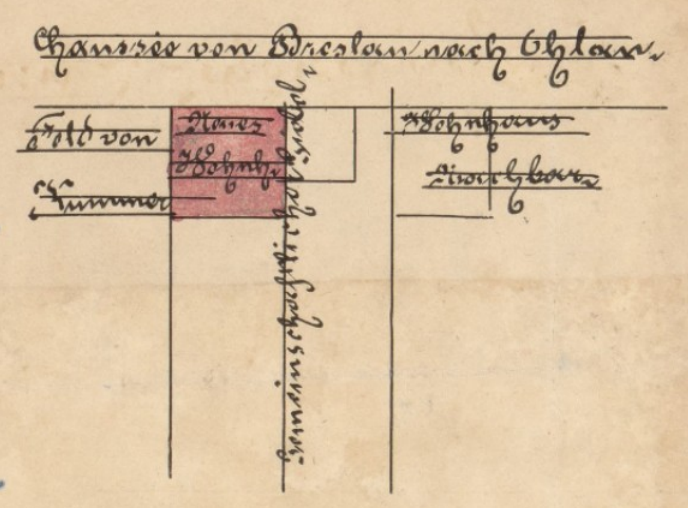 Chaussée von Breslau nach Ohlau.
Feld von
Kummer
Neues
Wohnh.
gemeinschaftlicher
Wohnhaus